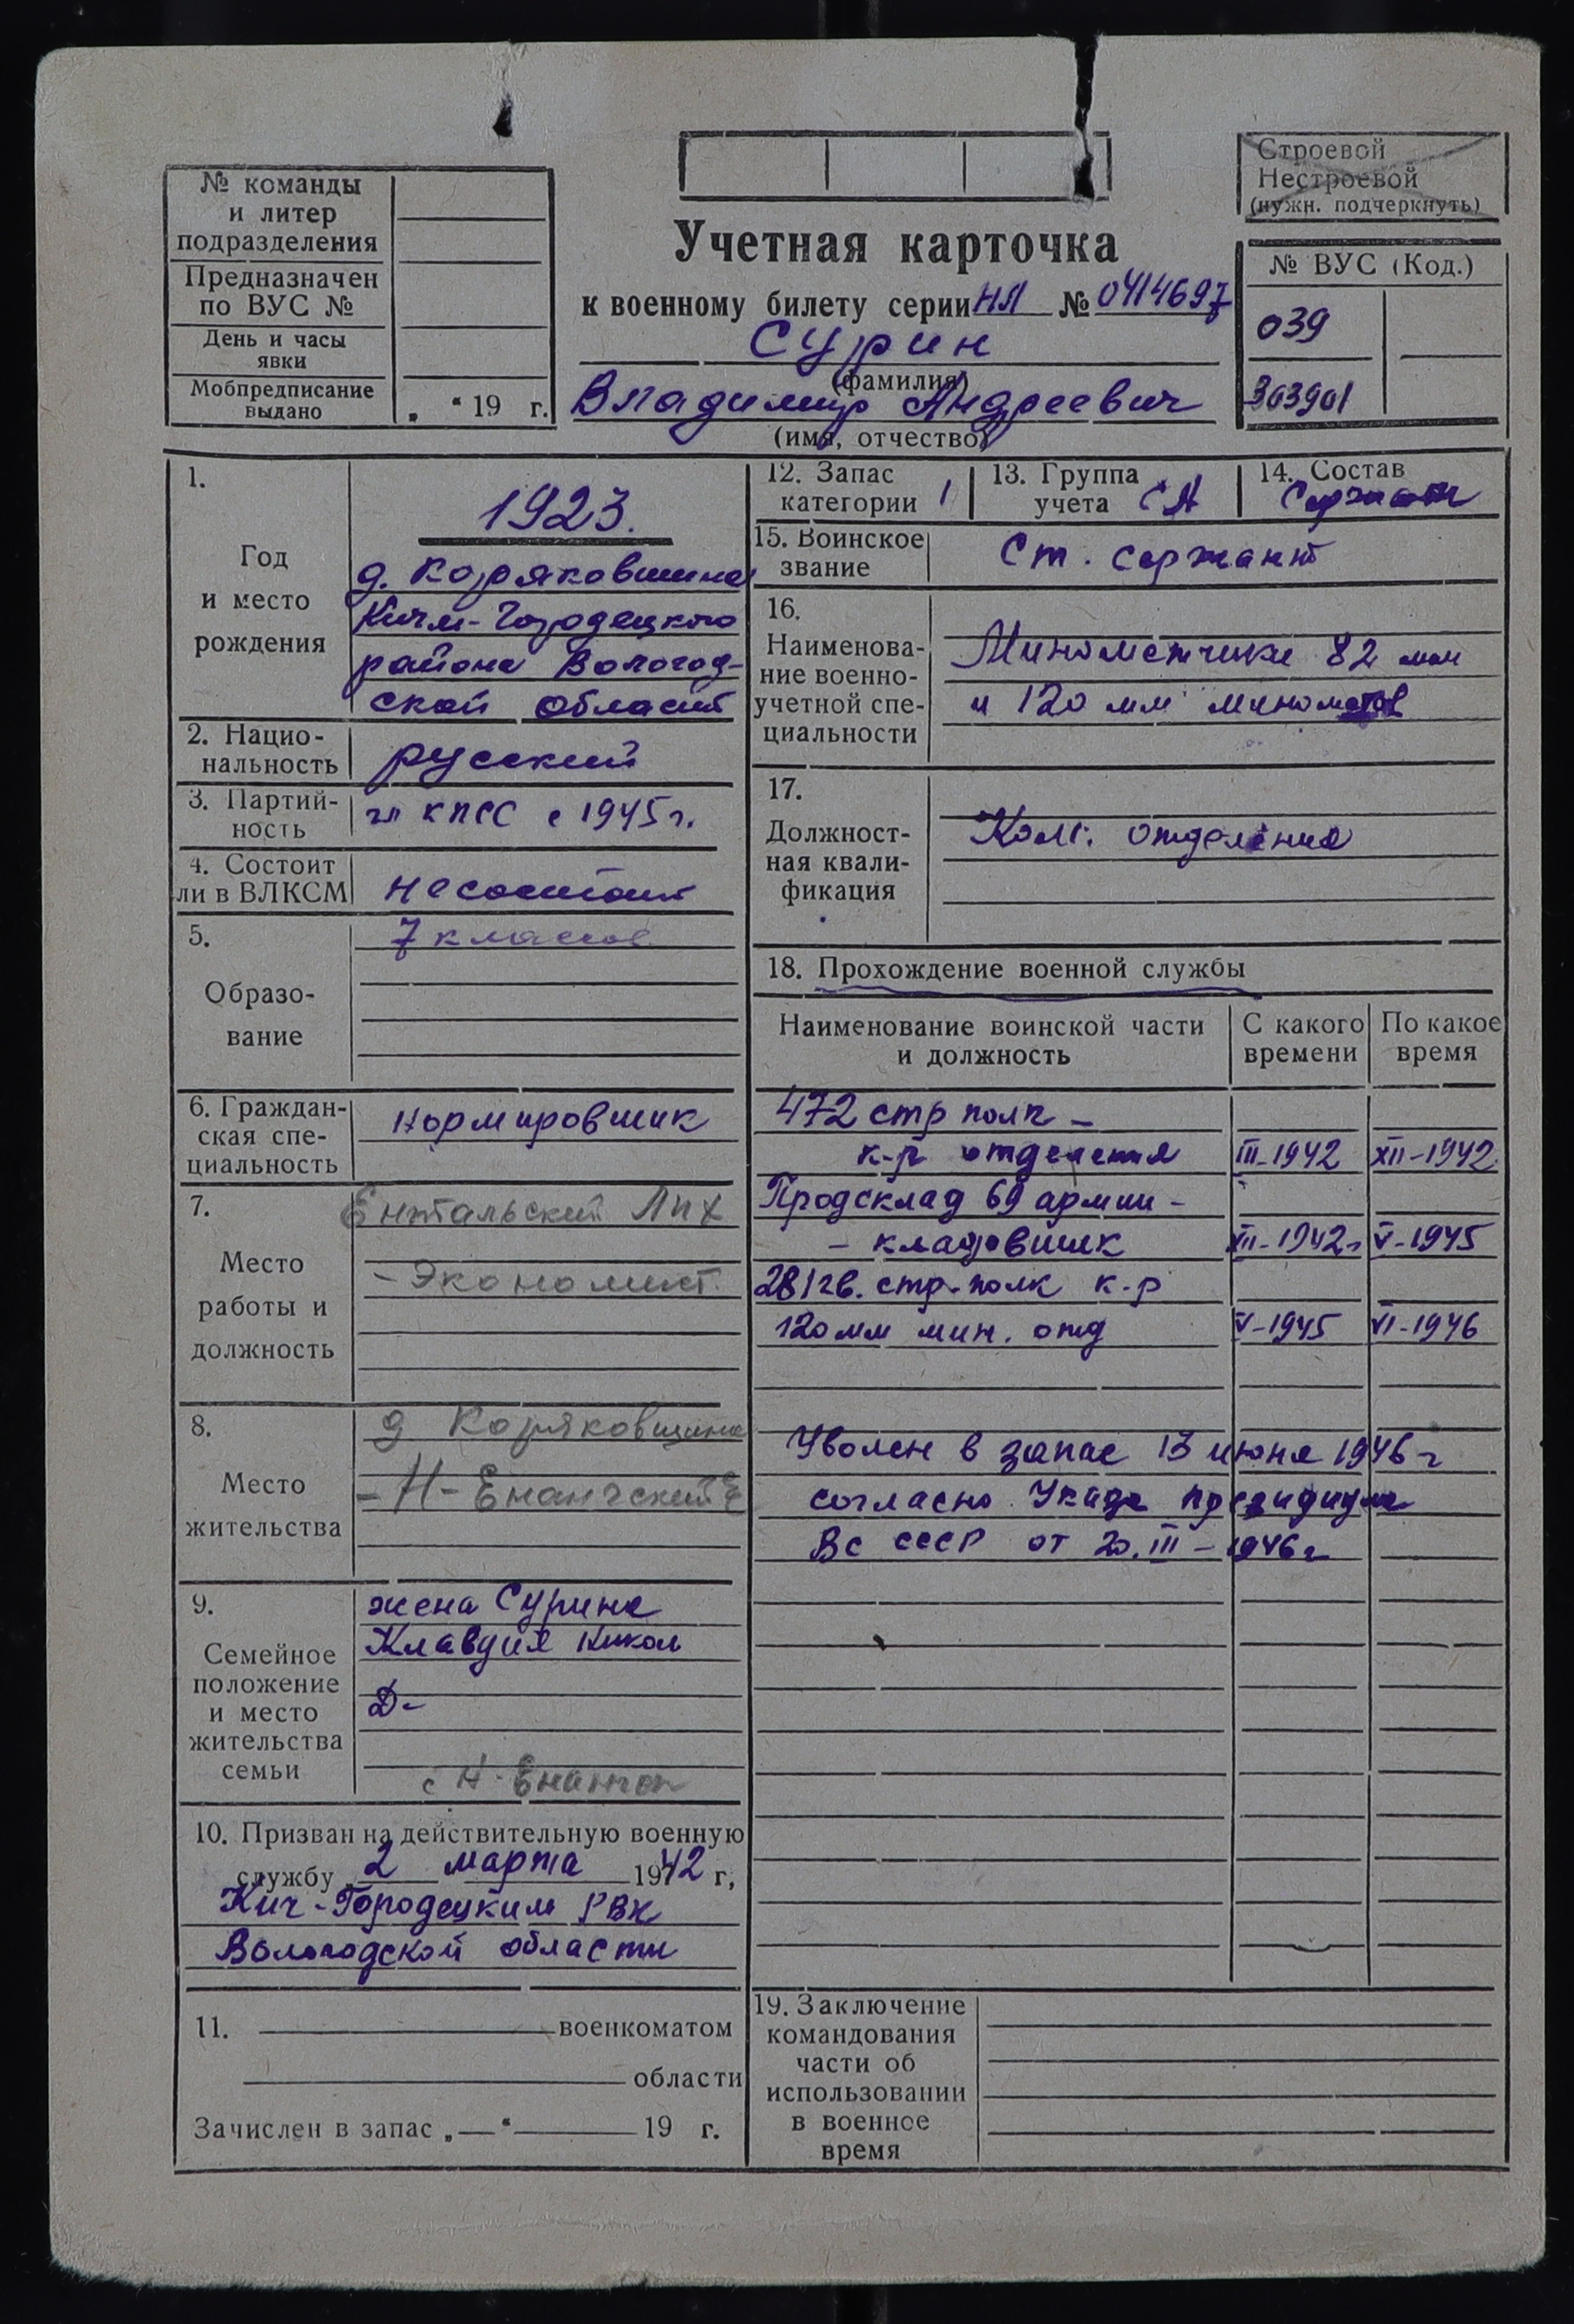 № команды
и литер
подразделения
Предназначен
по ВУС №
День и часы
явки
Мобпредписание
выдано
„ “ 19 г.
Строевой
Нестроевой
(нужн. подчеркнуть)
Учетная карточка
к военному билету серии НЛ № 0414697
Сурин
(фамилия)
Владимир Андреевич
(имя, отчество)
№ ВУС (Код.)
039
303901
1.
Год
и место
рождения
1923.
д. Коряковшина
Кичм-Городецкого
района Вологод-
ской области
2. Нацио-
нальность
русский
3. Партий-
ность
чл КПСС с 1945 г.
4. Состоит
ли в ВЛКСМ
не состоит
5.
Образо-
вание
7 классов
6. Граждан-
ская спе-
циальность
нормировшик
7.
Место
работы и
должность
Ентальский Лпх
- Экономист
8.
Место
жительства
д Коряковщина
- Н-Енангский
9.
Семейное
положение
и место
жительства
семьи
жена Сурина
Клавдия Никол
Д-
с Н-Енангск
10. Призван на действительную военную
службу „ 2 марта 1942 г,
Кич-Городецким РВК
Вологодской области
11. военкоматом
области
Зачислен в запас „—“ 19 г.
12. Запас
категории 1
13. Группа
учета СА
14. Состав
Сержант
15. Воинское
звание
Ст. сержант
16.
Наименова-
ние военно-
учетной спе-
циальности
Минометчики 82 мм
и 120 мм минометов
17.
Должност-
ная квали-
фикация
Ком. отделения
18. Прохождение военной службы
Наименование воинской части
и должность
С какого
времени
По какое
время
472 стр полк -
к-р отделения III-1942 XII-1942
Продсклад 69 армии -
- кладовшик XII-1942г V-1945
281 гв. стр-полк к-р
120 мм мин. отд V-1945 VI-1946
Уволен в запас 13 июня 1946 г
согласно Указа президиума
ВС СССР от 20.III-1946 г
19. Заключение
командования
части об
использовании
в военное
время